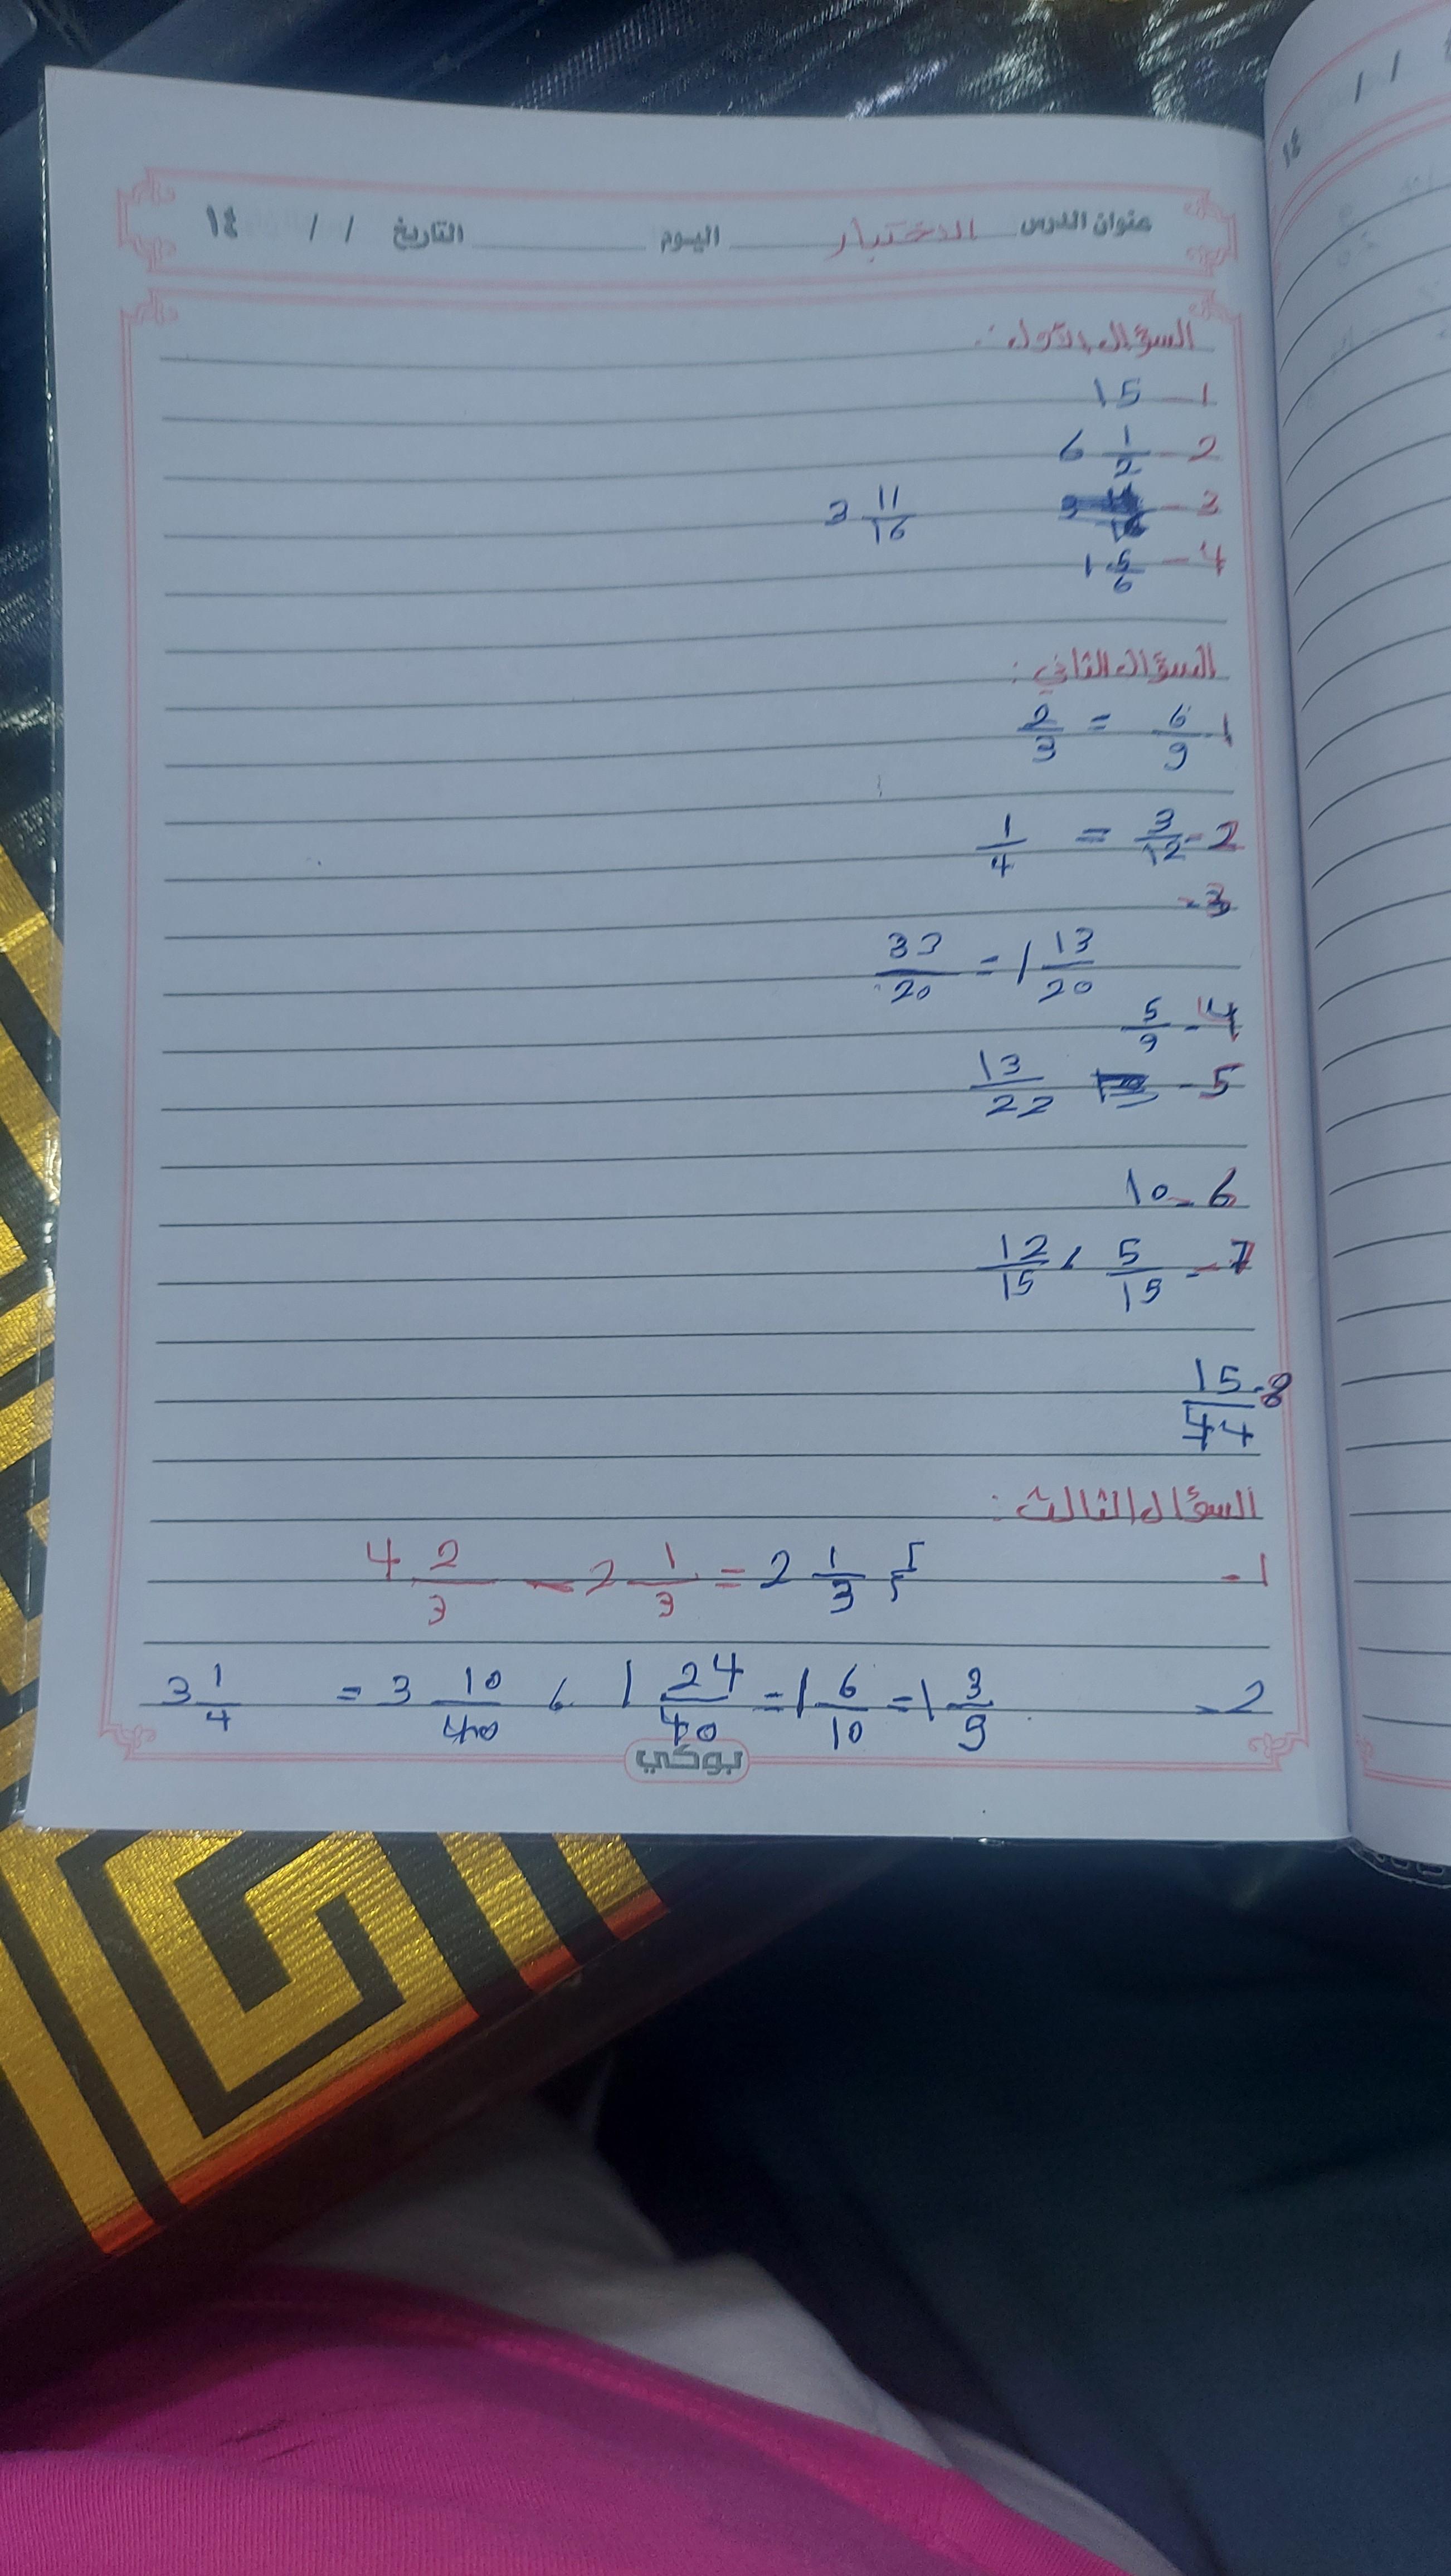 عنوان الدرس الاختبار اليوم التاريخ / / ١٤
السؤال الأول :
1 - 15
2 - 6 1/2
3 - 3 11/16
4 - 1 5/6
السؤال الثاني :
1 - 6/9 = 2/3
2 - 3/12 = 1/4
3 -
33/20 = 1 13/20
4 - 5/9
5 - 13/22
6 - 10
7 - 5/15 ، 12/15
8 - 15/44
السؤال الثالث :
1 - 4 2/3 - 2 1/3 = 2 1/3
2 - 3 1/4 = 3 10/40 ، 1 24/40 = 1 6/10 = 1 3/9
بوكي
/ /
١٤